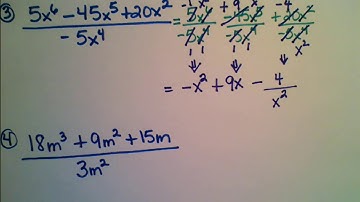 ③ 5x⁶ - 45x⁵ + 20x² / -5x⁴ = 5x⁶ / -5x⁴ -45x⁵ / -5x⁴ + 20x² / -5x⁴
= -x² + 9x - 4 / x²
④ 18m³ + 9m² + 15m / 3m²